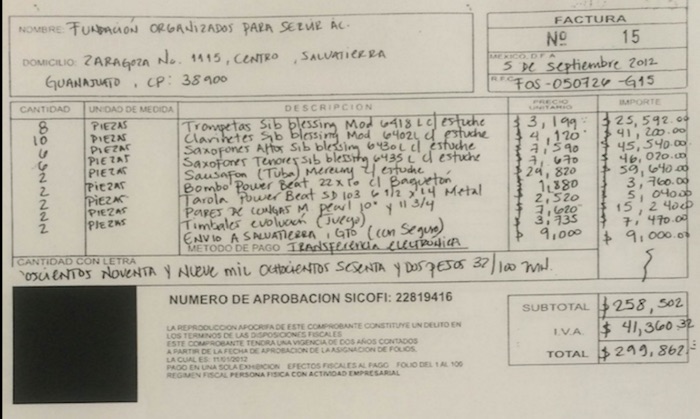 NOMBRE: FUNDACIÓN ORGANIZADOS PARA SERVIR AC.
DOMICILIO: ZARAGOZA No. 1115, CENTRO, SALVATIERRA
GUANAJUATO, CP: 38900
FACTURA
Nº 15
MEXICO, D.F. A
5 DE Septiembre 2012
R.F.C.
FOS-050726-G15
CANTIDAD UNIDAD DE MEDIDA DESCRIPCION PRECIO UNITARIO IMPORTE
8 PIEZAS Trompetas Sib blessing Mod 6418 L c/ estuche $ 3,199 $ 25,592.00
10 PIEZAS Clarinetes Sib blessing Mod 6402L c/ estuche $ 4,120 $ 41,200.00
6 PIEZAS Saxofones Altos Sib blessing 6430L c/ estuche $ 7,590 $ 45,540.00
6 PIEZAS Saxofones Tenores Sib blessing 6435 L c/ estuche $ 7,670 $ 46,020.00
2 PIEZAS Sausafon (Tuba) Mercury c/ estuche $ 29,820 $ 59,640.00
2 PIEZAS Bombo Power Beat 22 x 10 c/ Baquetón 1,880 $ 3,760.00
2 PIEZAS Tarola Power Beat SD 103 6 1/2 x 14 Metal $ 2,520 $ 5,040.00
2 PIEZAS PARES DE CONGAS M pearl 10" y 11 3/4 $ 7,620 $ 15,240.00
2 PIEZAS Timbales evolución (Juego) $ 3,735 $ 7,470.00
ENVIO A SALVATIERRA, GTO (con Seguro) $ 9,000 $ 9,000.00
METODO DE PAGO TRANSFERENCIA ELECTRÓNICA
CANTIDAD CON LETRA
OSCIENTOS NOVENTA Y NUEVE MIL OCHOCIENTOS SESENTA Y DOS PESOS 32/100 M.N.
NUMERO DE APROBACION SICOFI: 22819416
LA REPRODUCCION APOCRIFA DE ESTE COMPROBANTE CONSTITUYE UN DELITO EN
LOS TERMINOS DE LAS DISPOSICIONES FISCALES
ESTE COMPROBANTE TENDRA UNA VIGENCIA DE DOS AÑOS CONTADOS
A PARTIR DE LA FECHA DE APROBACION DE LA ASIGNACION DE FOLIOS,
LA CUAL ES: 11/01/2012
PAGO EN UNA SOLA EXHIBICION EFECTOS FISCALES AL PAGO FOLIO DEL 1 AL 100
REGIMEN FISCAL PERSONA FISICA CON ACTIVIDAD EMPRESARIAL
SUBTOTAL $ 258,502
I.V.A. $ 41,360.32
TOTAL $ 299,862.